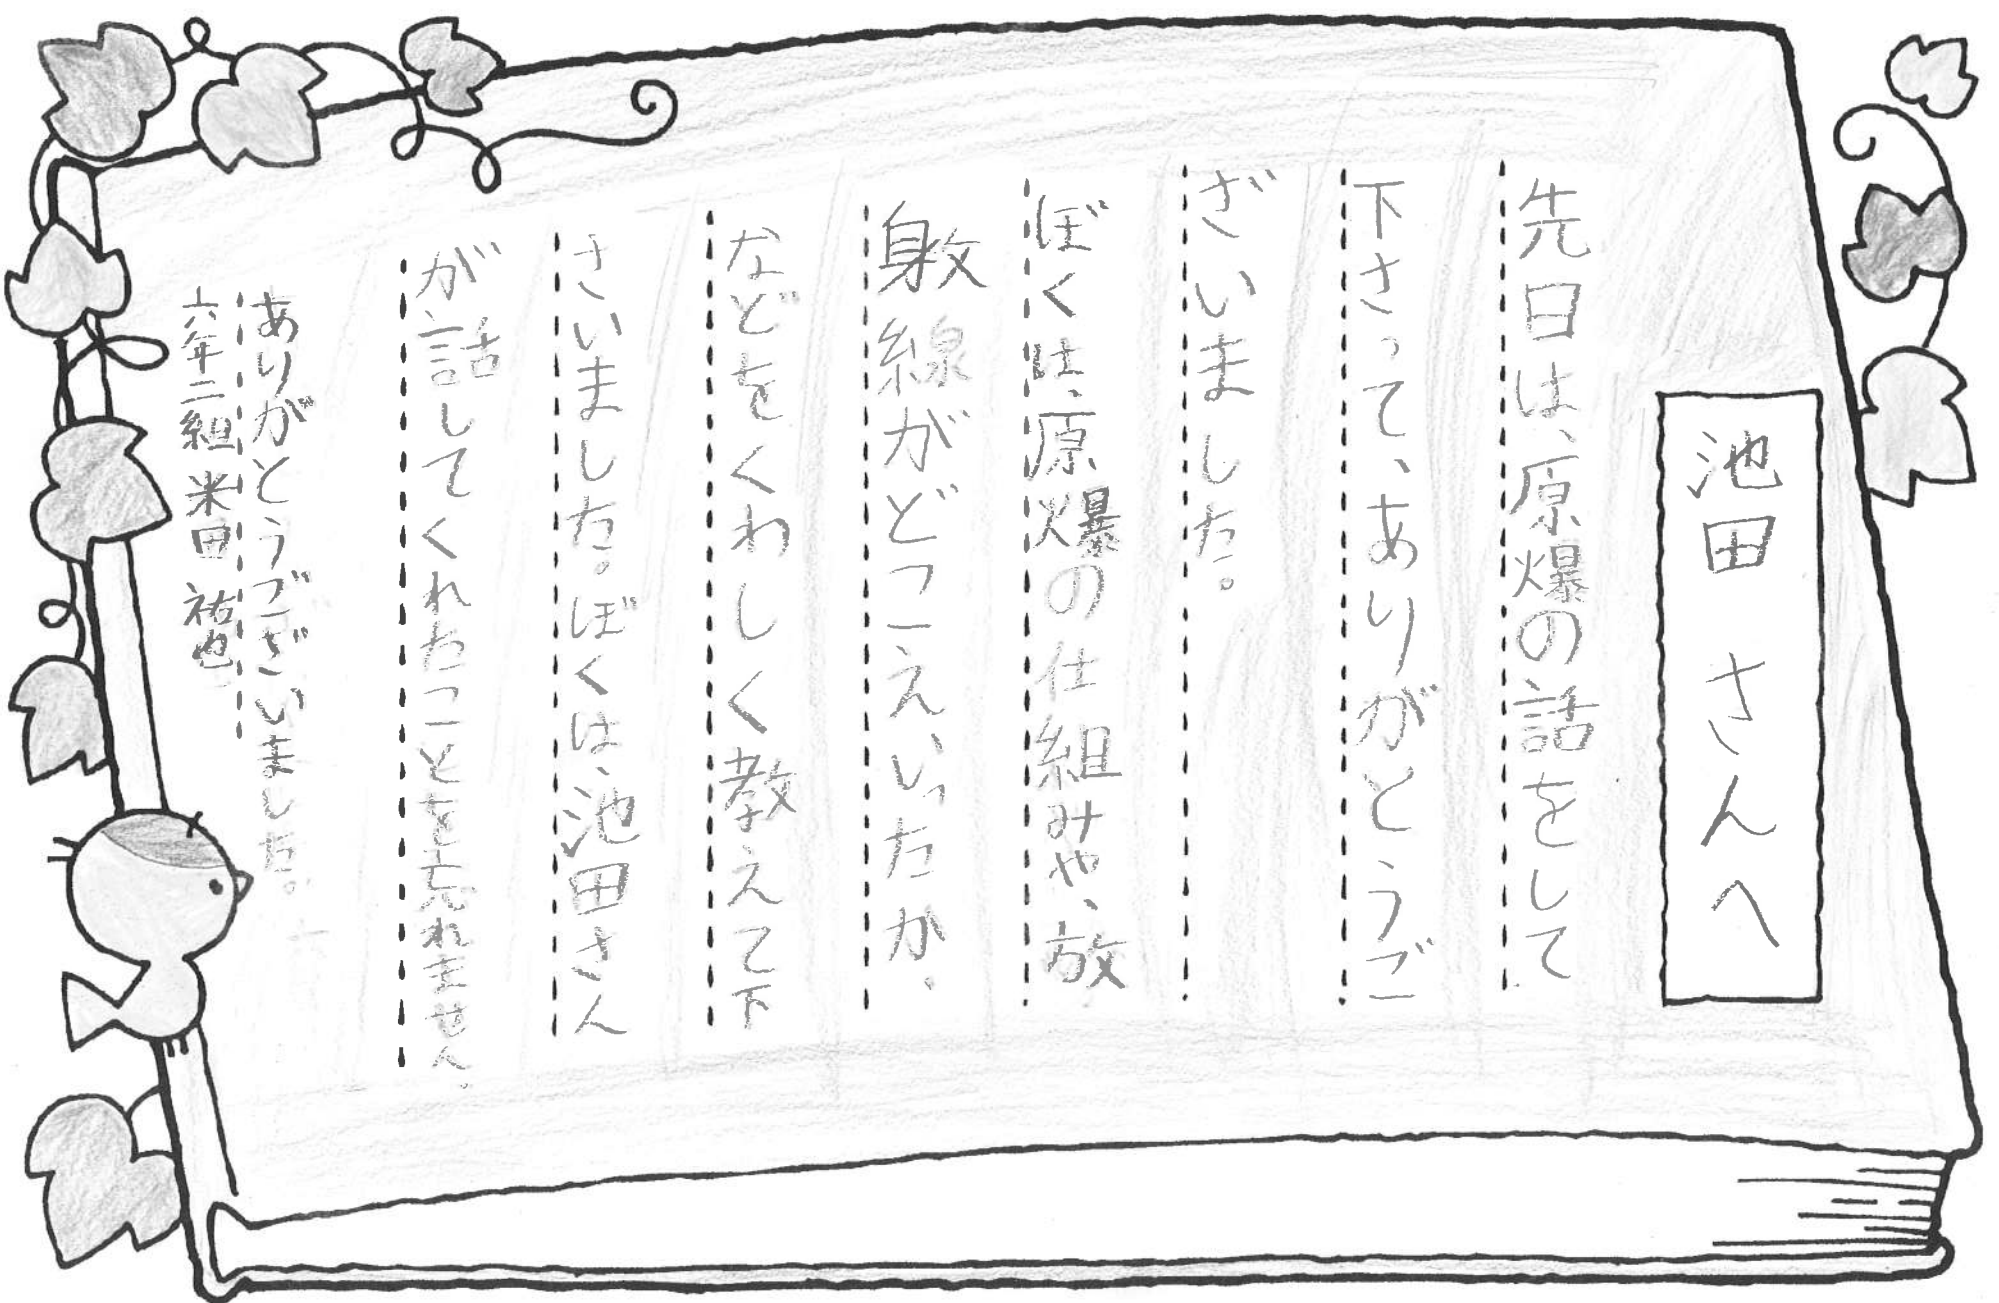 池田さんへ
先日は、原爆の話をして
下さって、ありがとうご
ざいました。
ぼくは、原爆の仕組みや、放
射線がどこえいったか、
などをくわしく教えて下
さいました。ぼくは、池田さん
が話してくれたことを忘れません。
ありがとうございました。
六年二組 米田 祐也